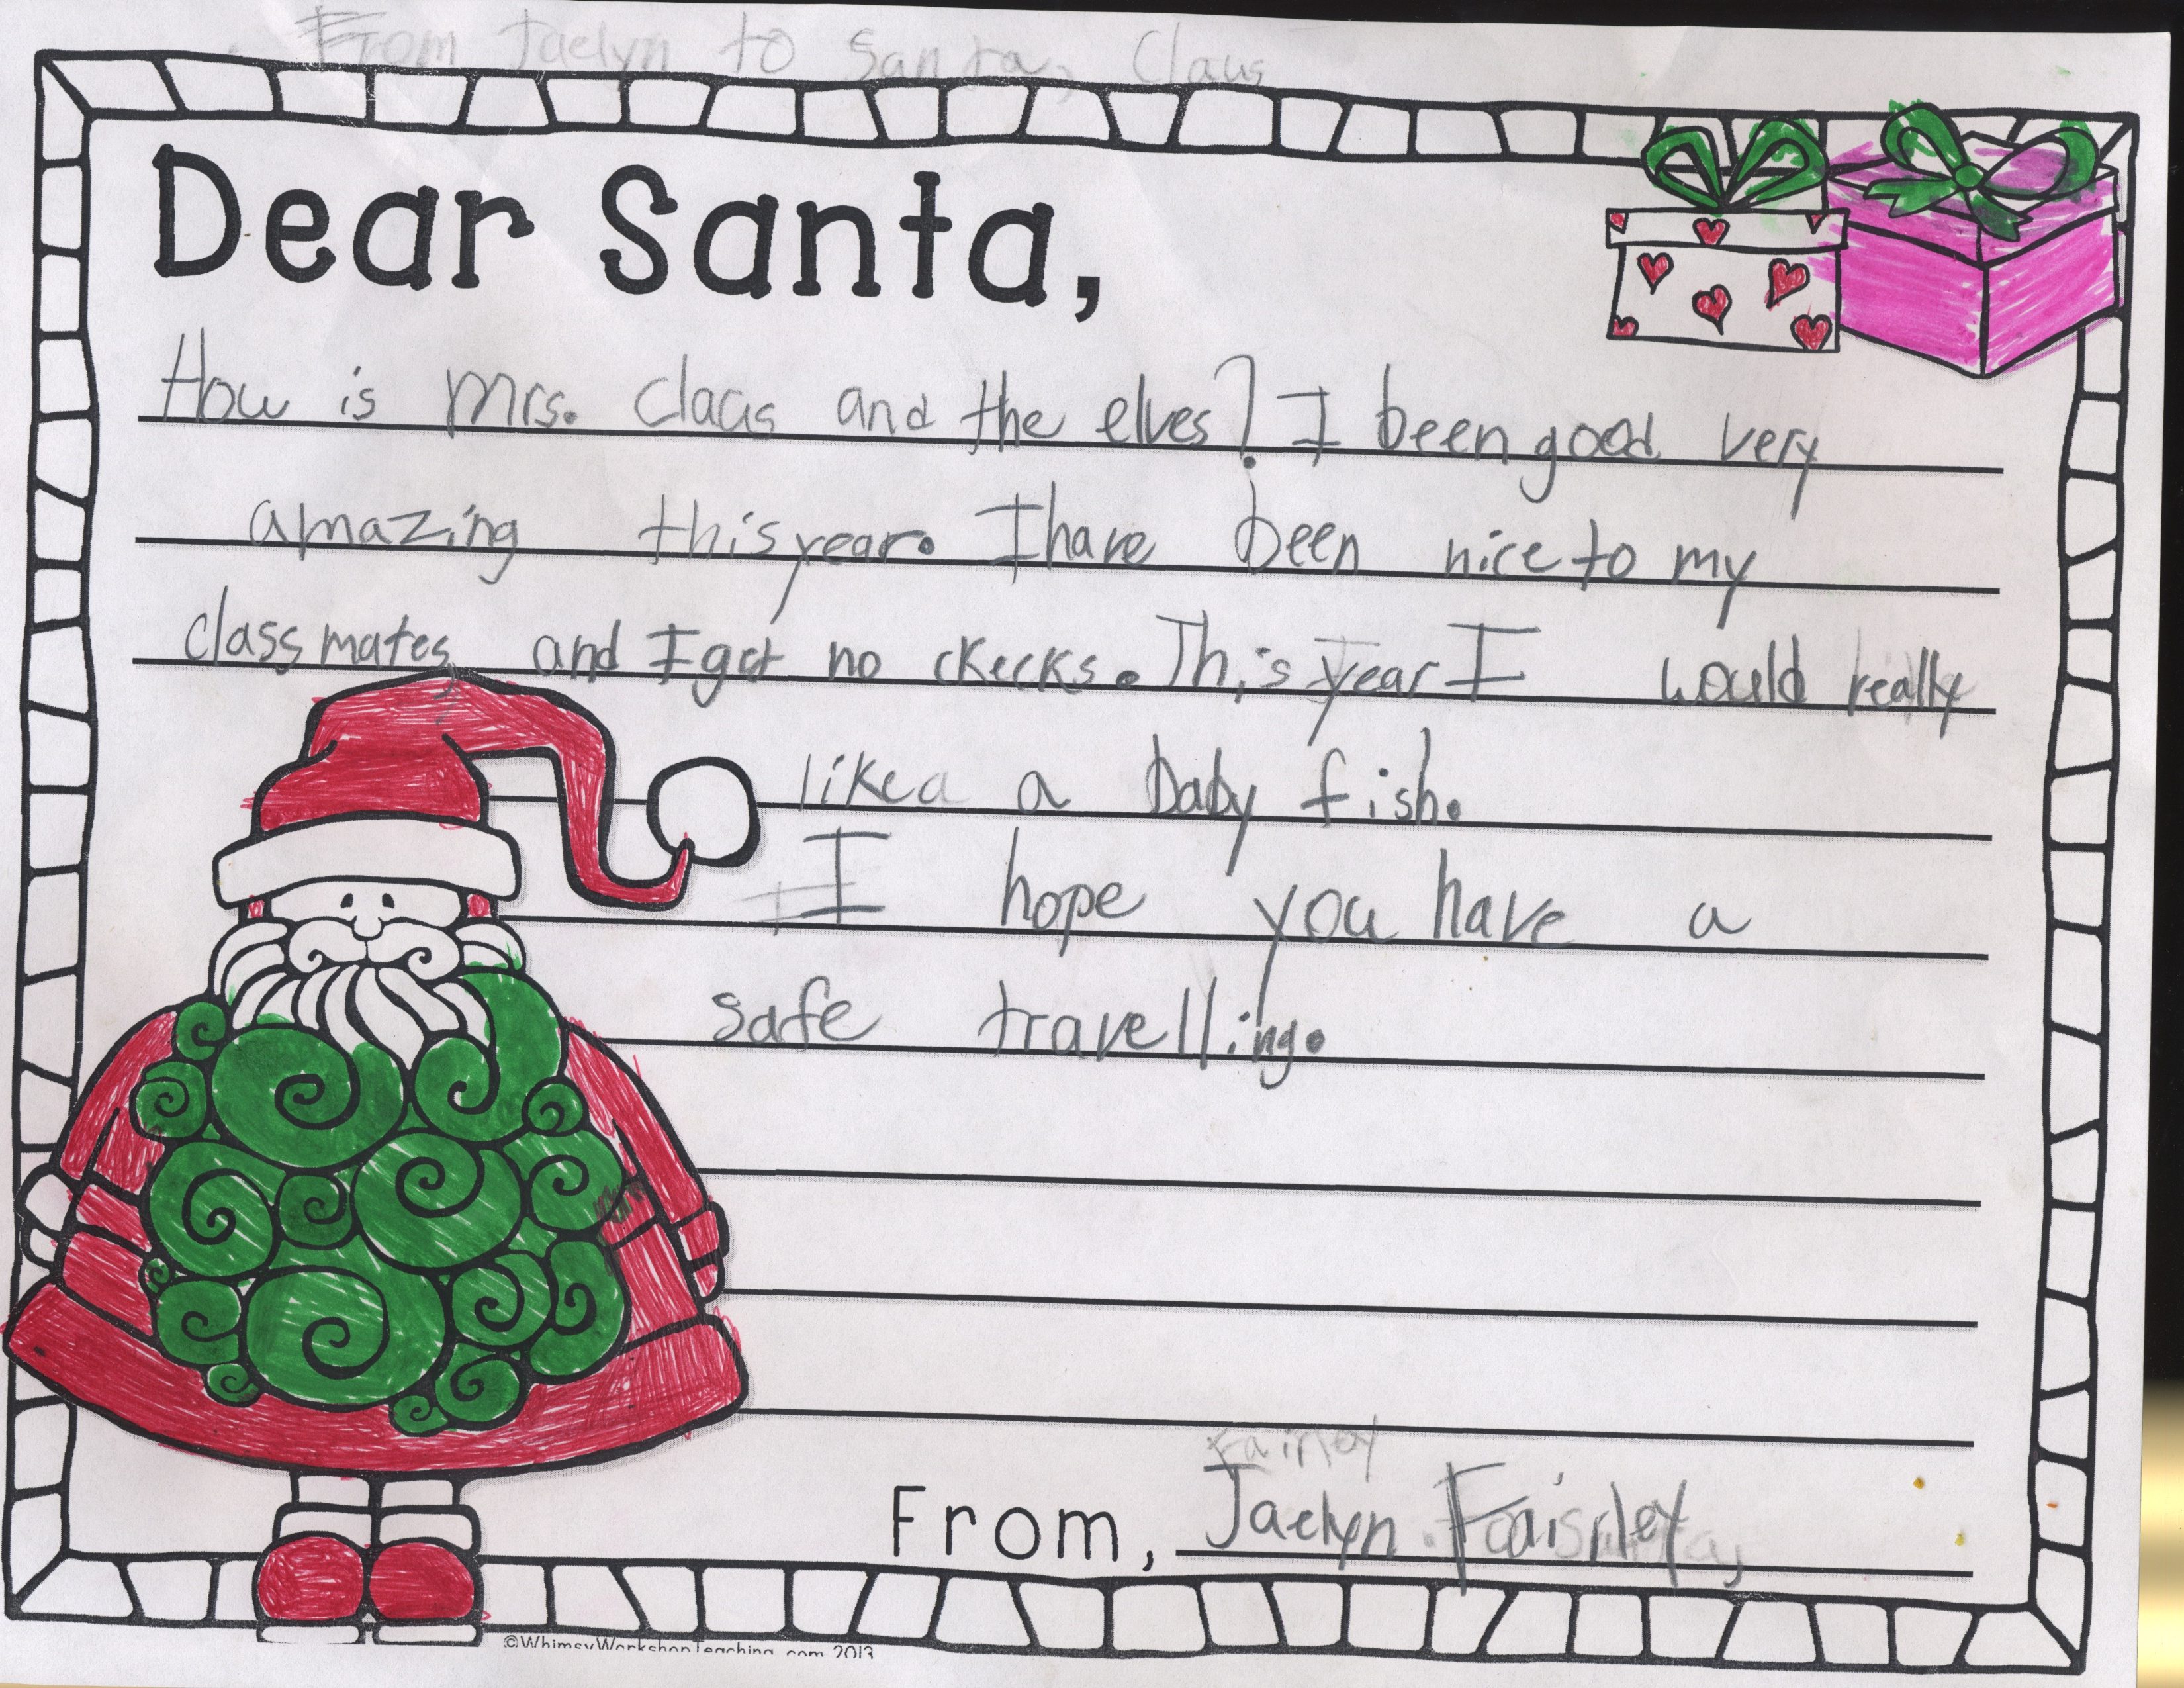 From Jaelyn to Santa, Claus
Dear Santa,
How is Mrs. Claus and the elves? I been good very
amazing this year. I have been nice to my
classmates and I got no ckecks. This year I would really
like a a baby fish.
I hope you have a
safe travelling.
Fairley
From, Jaelyn Fairley
©WhimsyWorkshopTeaching.com 2013